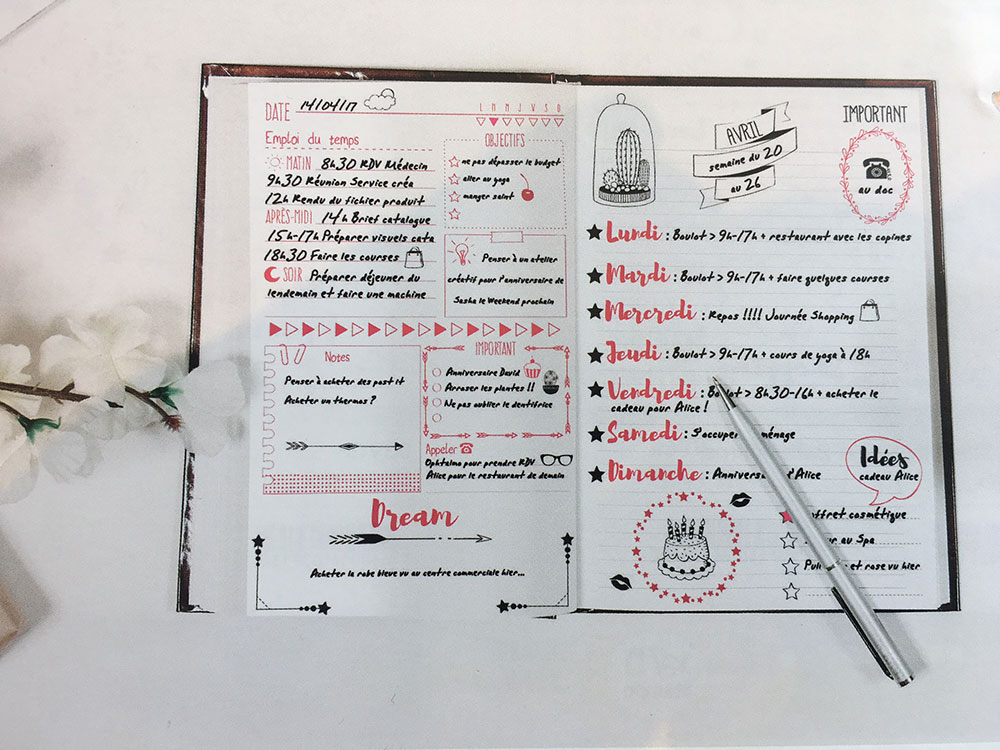 DATE 14/04/17
L M M J V S D
Emploi du temps
MATIN 8h30 RDV Médecin
9h30 Réunion Service créa
12h Rendu du fichier produit
APRÈS-MIDI 14h Brief catalogue
15h-17h Préparer visuels cata
18h30 Faire les courses
SOIR Préparer déjeuner du
lendemain et faire une machine
OBJECTIFS
ne pas dépasser le budget
aller au yoga
manger saint
Penser à un atelier
créatif pour l'anniversaire de
Sasha le Weekend prochain
Notes
Penser à acheter des post it
Acheter un thermos ?
IMPORTANT
Anniversaire David
Arroser les plantes !!
Ne pas oublier le dentifrice
Appeler
Ophtalmo pour prendre RDV
Alice pour le restaurant de demain
Dream
Acheter la robe bleue vu au centre commerciale hier...
AVRIL
semaine du 20
au 26
IMPORTANT
au doc
Lundi : Boulot > 9h-17h + restaurant avec les copines
Mardi : Boulot > 9h-17h + faire quelques courses
Mercredi : Repos !!!! Journée Shopping
Jeudi : Boulot > 9h-17h + cours de yoga à 18h
Vendredi : Boulot > 8h30-16h + acheter le
cadeau pour Alice !
Samedi : S'occuper ménage
Dimanche : Anniversaire d'Alice
Idées
cadeau Alice
Coffret cosmétique
au Spa
et rose vu hier